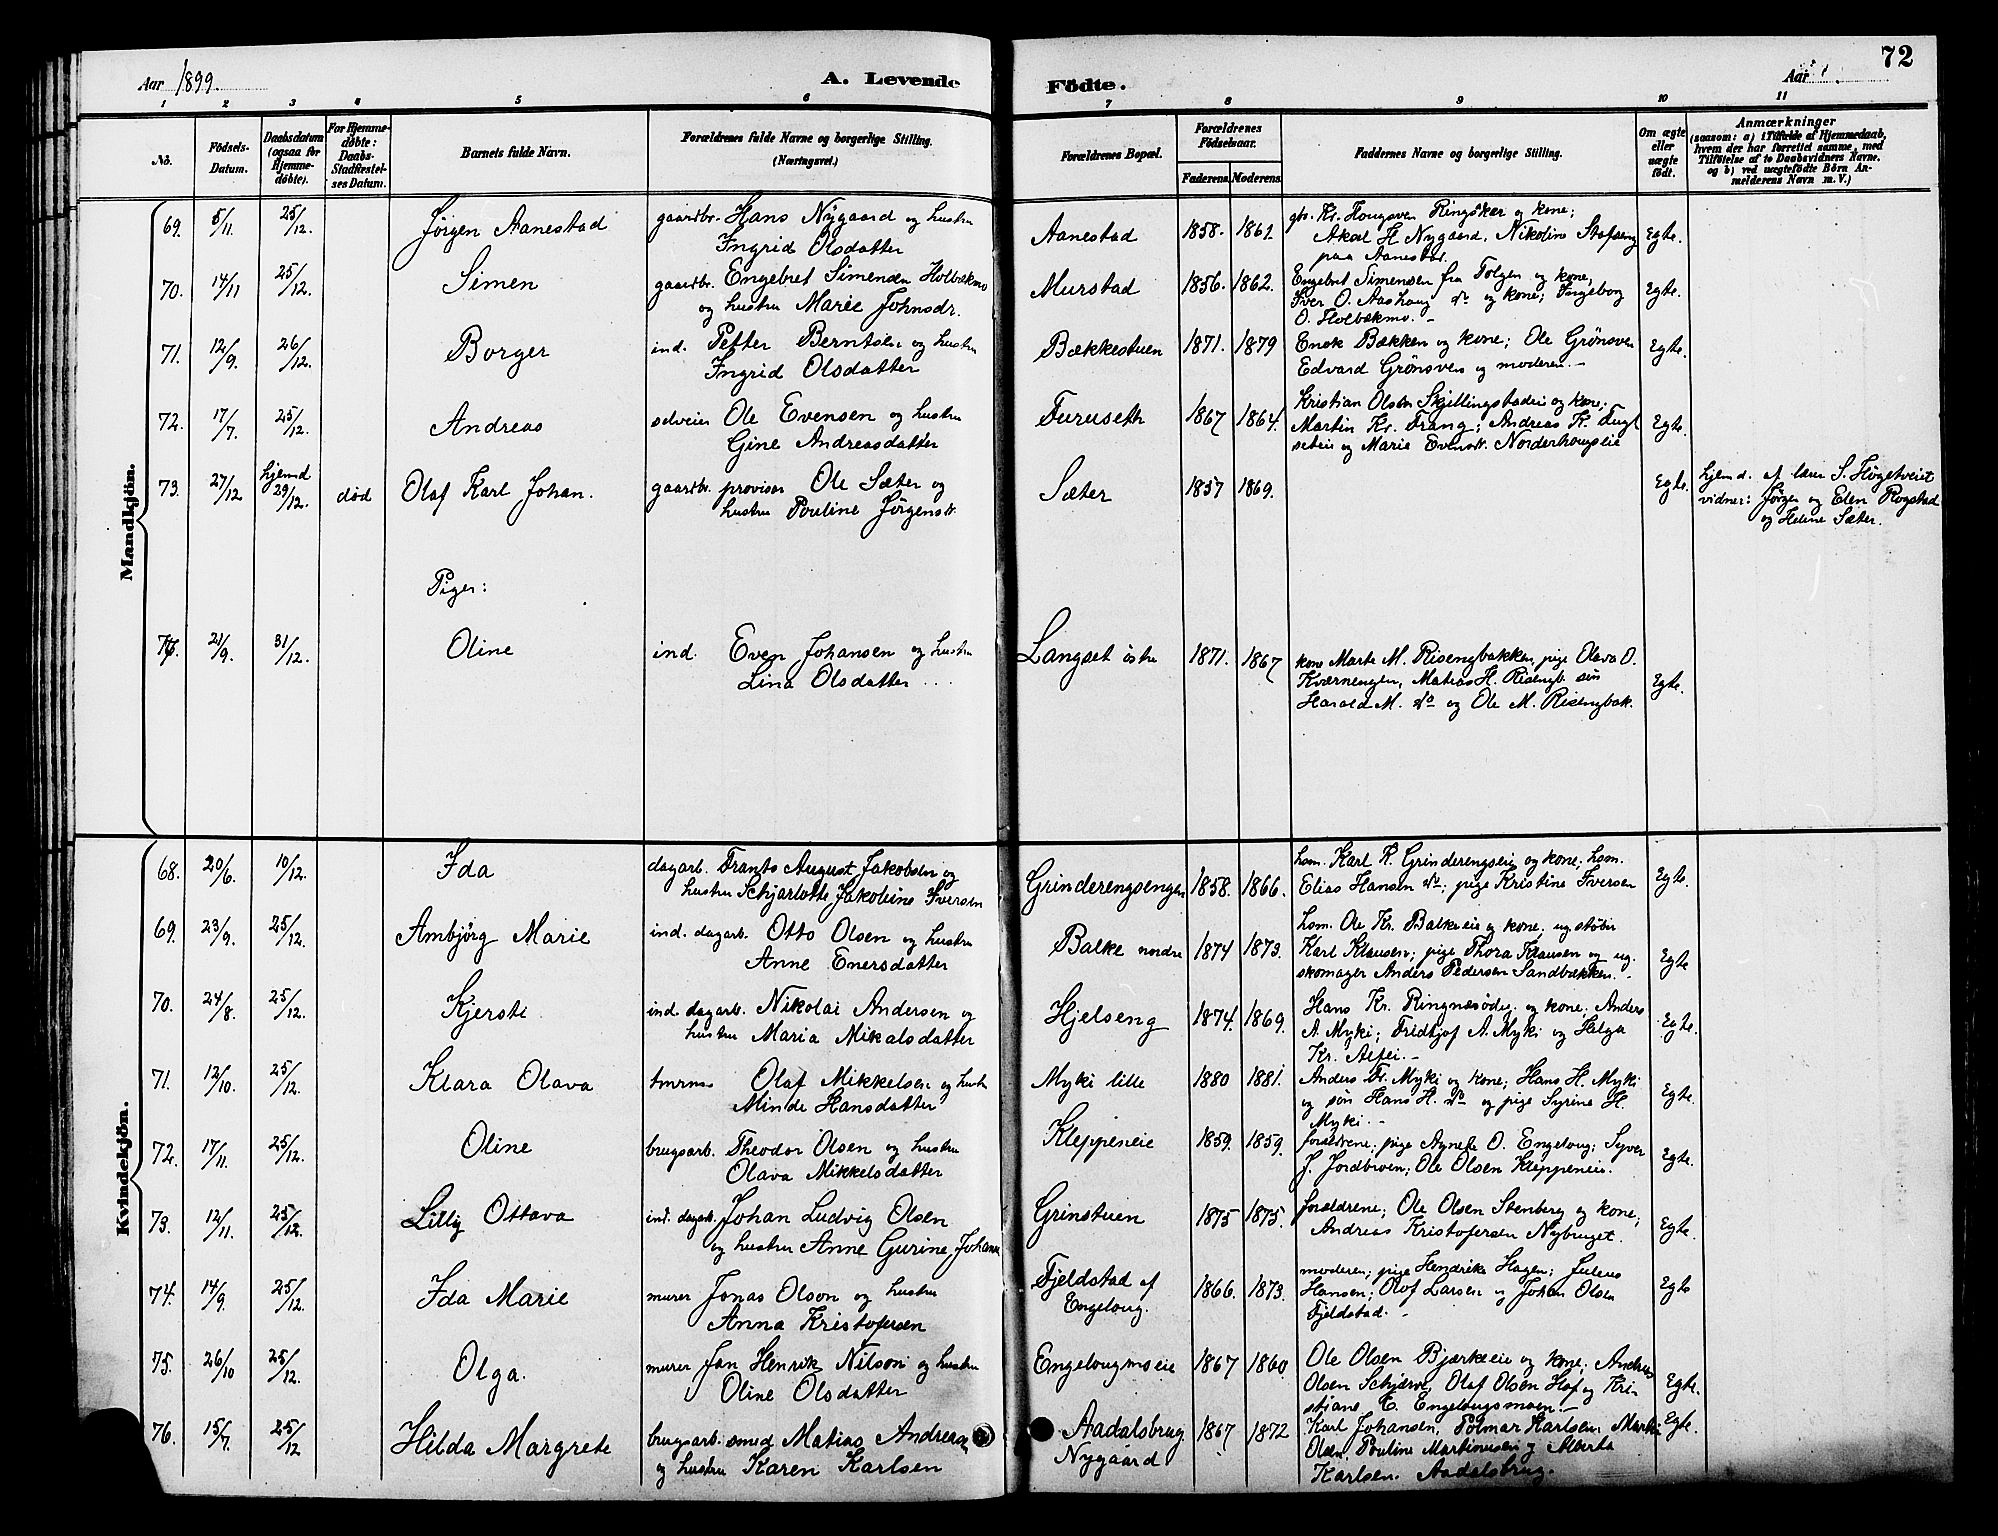 Aar 1899. A. Levende Födte. Aar 72
1 2 3 4 5 6 7 8 9 10 11
No. Födsels-Datum. Daabsdatum (ogsaa for Hjemmedöbte). For Hjemmedöbte: Daabs-Stadfæstelses Datum. Barnets fulde Navn. Forældrenes fulde Navne og borgerlige Stilling. (Næringsvei.) Forældrenes Bopæl. Forældrenes Födselsaar. Faderens. Moderens. Faddernes Navne og borgerlige Stilling. Om ægte eller uægte födt. Anmærkninger (saasom: a) i Tilfælde af Hjemmedaab, hvem der har forrettet samme, med Tilföielse af to Daabsvidners Navne, og b) ved uægtefödte Börn Anmelderens Navn m. V.)
Mandkjön.
69. 5/11 25/12. Jørgen Aanestad gaardbr. Hans Nygaard og hustru Aanestad 1858. 1861. gbr. Kr. Hougsven Ringsker og kone; Egte.
Ingrid Olsdatter Aksel H. Nygaard, Nikoline
paa Aanestad.
70. 14/11 25/12. Simen gaardbr. Engebret Simensen Holbækmo Murstad 1856. 1862. Engebret Simensen fra Tolgen og kone, Egte.
og hustru Marie Johnsdr. Iver O. Aashaug do og kone; Ingebog
O. Holbækmo. –
71. 12/9. 26/12. Borger ind. Petter Berntsen og hustru Bækkestuen 1871. 1879 Enok Bækken og kone; Ole Grønsven Egte.
Ingrid Olsdatter Edvard Grønsven og moderen. –
72. 17/7. 25/12. Andreas selveier Ole Evensen og hustru Furuseth 1867 1864. Kristian Olsen Skjellingstadeie og kone; Egte.
Gine Andreasdatter Martin Kr. Frang; Andreas K. Fugl
seteie og Marie Evensdt. Norderhougseie
73. 27/12 hjemd 29/12. død Olaf Karl Johan. gaardbr. provisor Ole Sæter og Sæter 1857 1869. Egte. hjemd. af lærer S. Høgetveit
hustru Pouline Jørgensdt. vidner: Jørgen og Elen Rogstad
og Helene Sæter.
Piger:
77. 21/9. 31/12. Oline ind. Even Johansen og hustru Langset østre 1871. 1867 kone Marte M. Risengbakken, pige Olava O. Egte.
Lina Olsdatter Kværnengen, Matias H. Risengb. søn
Harald M. do og Ole M. Risengbak.
Kvindekjön.
68. 20/6. 10/12. Ida dagarb. Frants August Jakobsen og Grinderengsengen 1858. 1866. hsm. Karl K. Grinderengseie og kone, hsm. Egte.
hustru Schjarlotte Jakobine Iversen Elias Hansen do; pige Kristine Iversen
69. 23/9. 25/12. Ambjørg Marie ind. dagarb. Otto Olsen og hustru Balke nordre 1874 1873. hsm. Ole Kr. Balkeeie og kone, ug. støber Egte
Anne Enersdatter Karl Klausen; pige Thora Klausen og ug.
skomager Anders Pedersen Sandbækken. –
70. 24/8. 25/12. Kjersti ind. dagarb. Nikolai Andersen og Hjelseng 1874. 1869. Hans Kr. Ringnæsødeg. og kone, Anders Egte.
hustru Maria Mikalsdatter A. Myki; Fridtjof A. Myki og Helga
Kr. Alfei. –
71. 12/10. 25/12. Klara Olava tmrms Olaf Mikkelsen og hustr. Myki lille 1880 1881. Anders Fr. Myki og kone; Hans H. Myki Egte.
Minde Hansdatter og søn Hans H. do og pige Syrine H.
Myki. –
72. 17/11. 25/12. Oline brugsarb. Theodor Olsen og hustru Kleppeneie 1859. 1859. forældrene, pige Agnete O. Engeloug; Syver Egte.
Olava Mikkelsdatter J. Jordbroen; Ole Olsen Kleppeneie.
73. 12/11. 25/12. Lilly Ottava ind. dagarb. Johan Ludvig Olsen Grinstuen 1875 1875. forældrene; Ole Olsen Stenberg og kone; Egte.
og hustru Anne Gurine Johans Andreas Kristofersen Nybruget.
74. 14/9. 25/12. Ida Marie murer Jonas Olson og hustru Fjeldstad af 1866. 1873. moderen; pige Hendrike Hagen; Julius Egte
Anna Kristofersen Engeloug. Hansen; Olof Larsen og Johan Olsen
Fjeldstad. –
75. 26/10 25/12. Olga. murer Jan Henrik Nilson og hustru Engelougmseie 1867 1860 Ole Olsen Bjørkeeie og kone; Andreas Egte.
Oline Olsdatter Olsen Schjærve, Olaf Olsen Hof og Kri-
stiane E. Engelougsmoen. –
76. 15/7. 25/12 Hilda Margrete brugsarb. smed Matias Andreas Aadalsbrug 1867 1872 Karl Johansen, Polmar Karlsen, Martin Egte.
og hustru Karen Karlsen Nygaard Olsen, Pouline Martinusen og Alberta
Karlsen. Aadalsbrug.